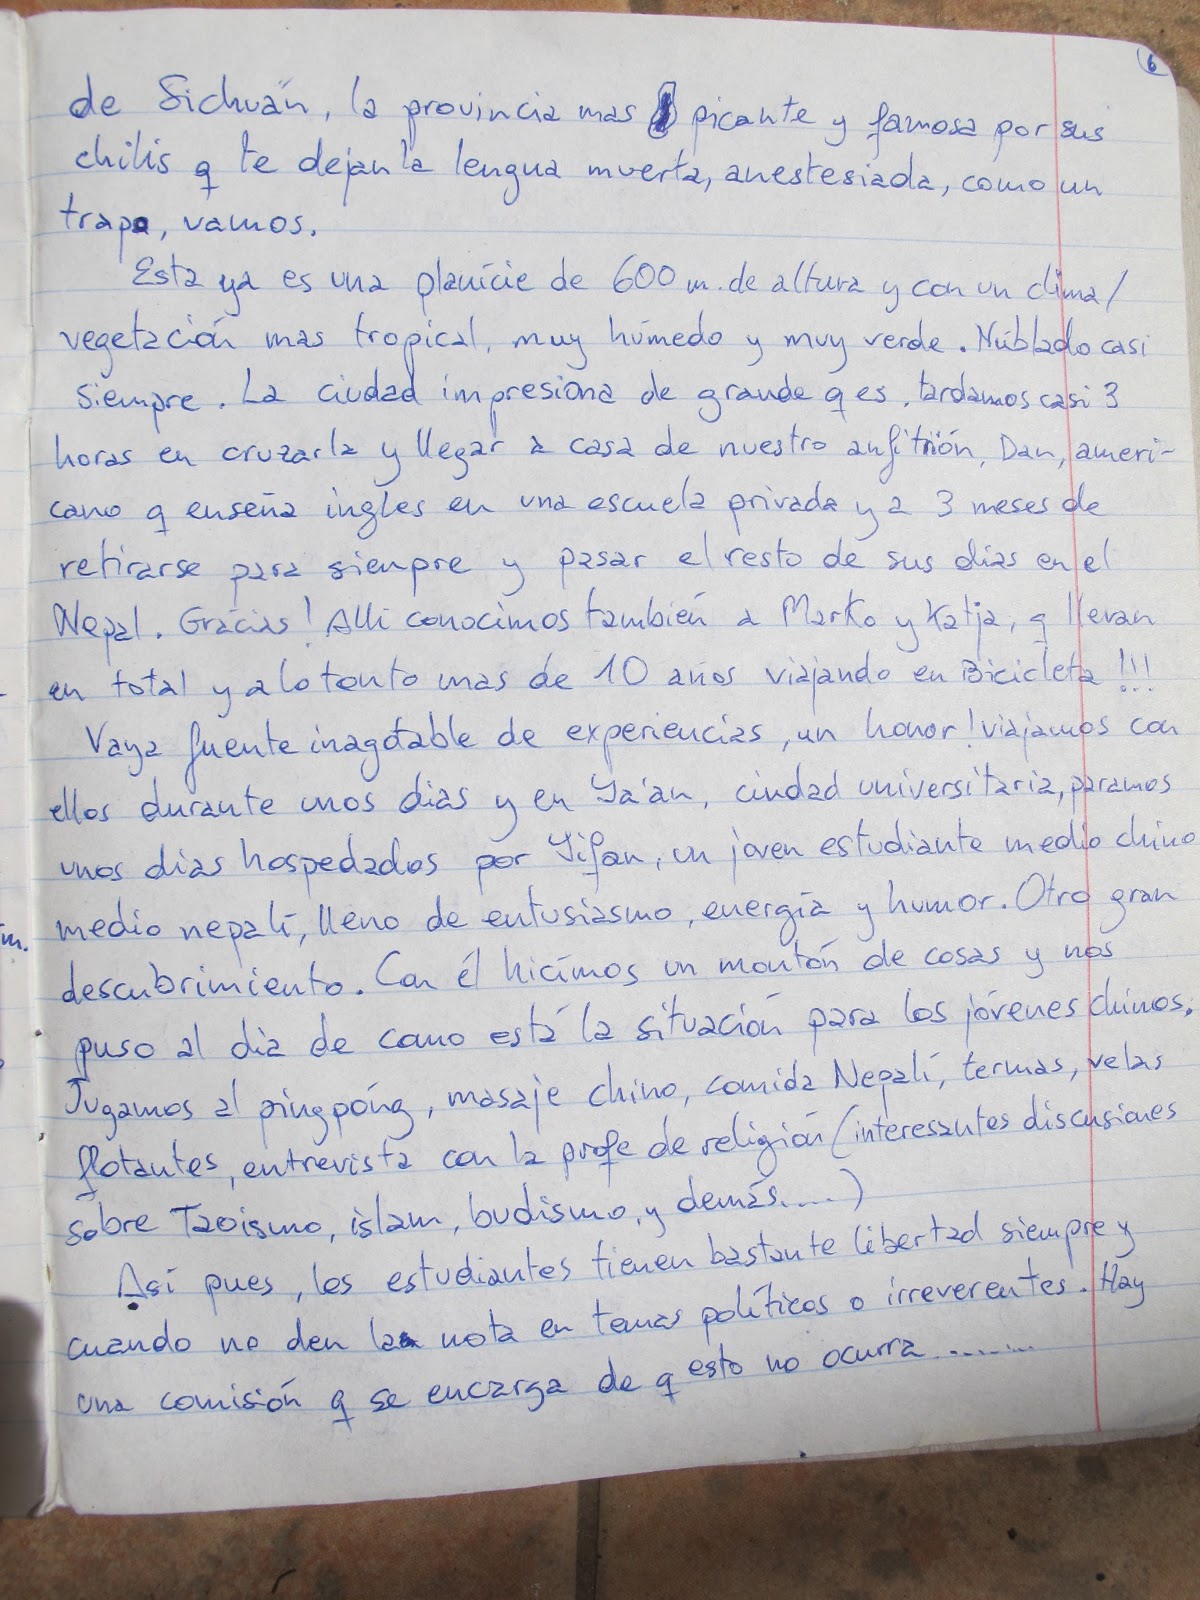 6
de Sichuán, la provincia mas picante y famosa por sus
chilis q te dejan la lengua muerta, anestesiada, como un
trapo, vamos.
Esta ya es una planicie de 600 m. de altura y con un clima/
vegetación mas tropical, muy húmedo y muy verde. Núblado casi
siempre. La ciudad impresiona de grande q es, tardamos casi 3
horas en cruzarla y llegar a casa de nuestro anfitrión, Dan, ameri-
cano q enseña ingles en una escuela privada y a 3 meses de
retirarse para siempre y pasar el resto de sus dias en el
Nepal. Gracias! Alli conocimos también a Marko y Katja, q llevan
en total y a lo tonto mas de 10 años viajando en Bicicleta!!!
Vaya fuente inagotable de experiencias, un honor! viajamos con
ellos durante unos dias y en Ya'an, ciudad universitaria, paramos
unos dias hospedados por Yifan, un joven estudiante medio chino
medio nepalí, lleno de entusiasmo, energía y humor. Otro gran
descubrimiento. Con él hicimos un montón de cosas y nos
puso al dia de como está la situación para los jóvenes chinos.
Jugamos al pingpóng, masaje chino, comida Nepalí, termas, velas
flotantes, entrevista con la profe de religión (interesantes discusiones
sobre Taoismo, islam, budismo, y demás.....)
Así pues, los estudiantes tienen bastante libertad siempre y
cuando no den la nota en temas políticos o irreverentes. Hay
una comisión q se encarga de q esto no ocurra ........
m.